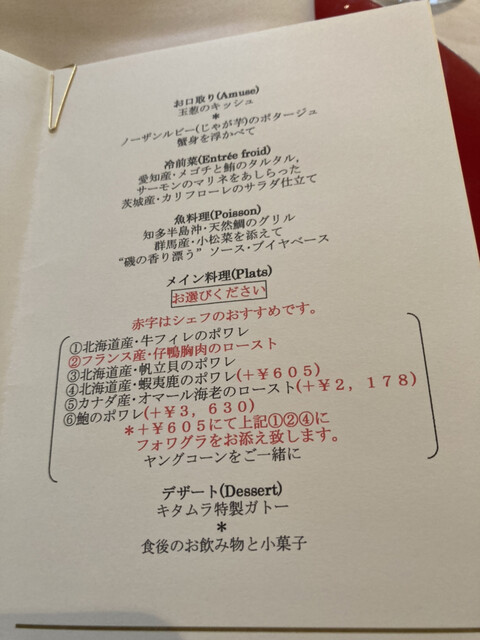 お口取り(Amuse)
玉葱のキッシュ
*
ノーザンルビー(じゃが芋)のポタージュ
蟹身を浮かべて
冷前菜(Entrée froid)
愛知産・メゴチと鮪のタルタル,
サーモンのマリネをあしらった
茨城産・カリフローレのサラダ仕立て
魚料理(Poisson)
知多半島沖・天然鯛のグリル
群馬産・小松菜を添えて
“磯の香り漂う” ソース・ブイヤベース
メイン料理(Plats)
お選びください
赤字はシェフのおすすめです。
①北海道産・牛フィレのポワレ
②フランス産・仔鴨胸肉のロースト
③北海道産・帆立貝のポワレ
④北海道産・蝦夷鹿のポワレ(+¥605)
⑤カナダ産・オマール海老のロースト(+¥2,178)
⑥鮑のポワレ(+¥3,630)
*+¥605にて上記①②④に
フォワグラをお添え致します。
ヤングコーンをご一緒に
デザート(Dessert)
キタムラ特製ガトー
*
食後のお飲み物と小菓子